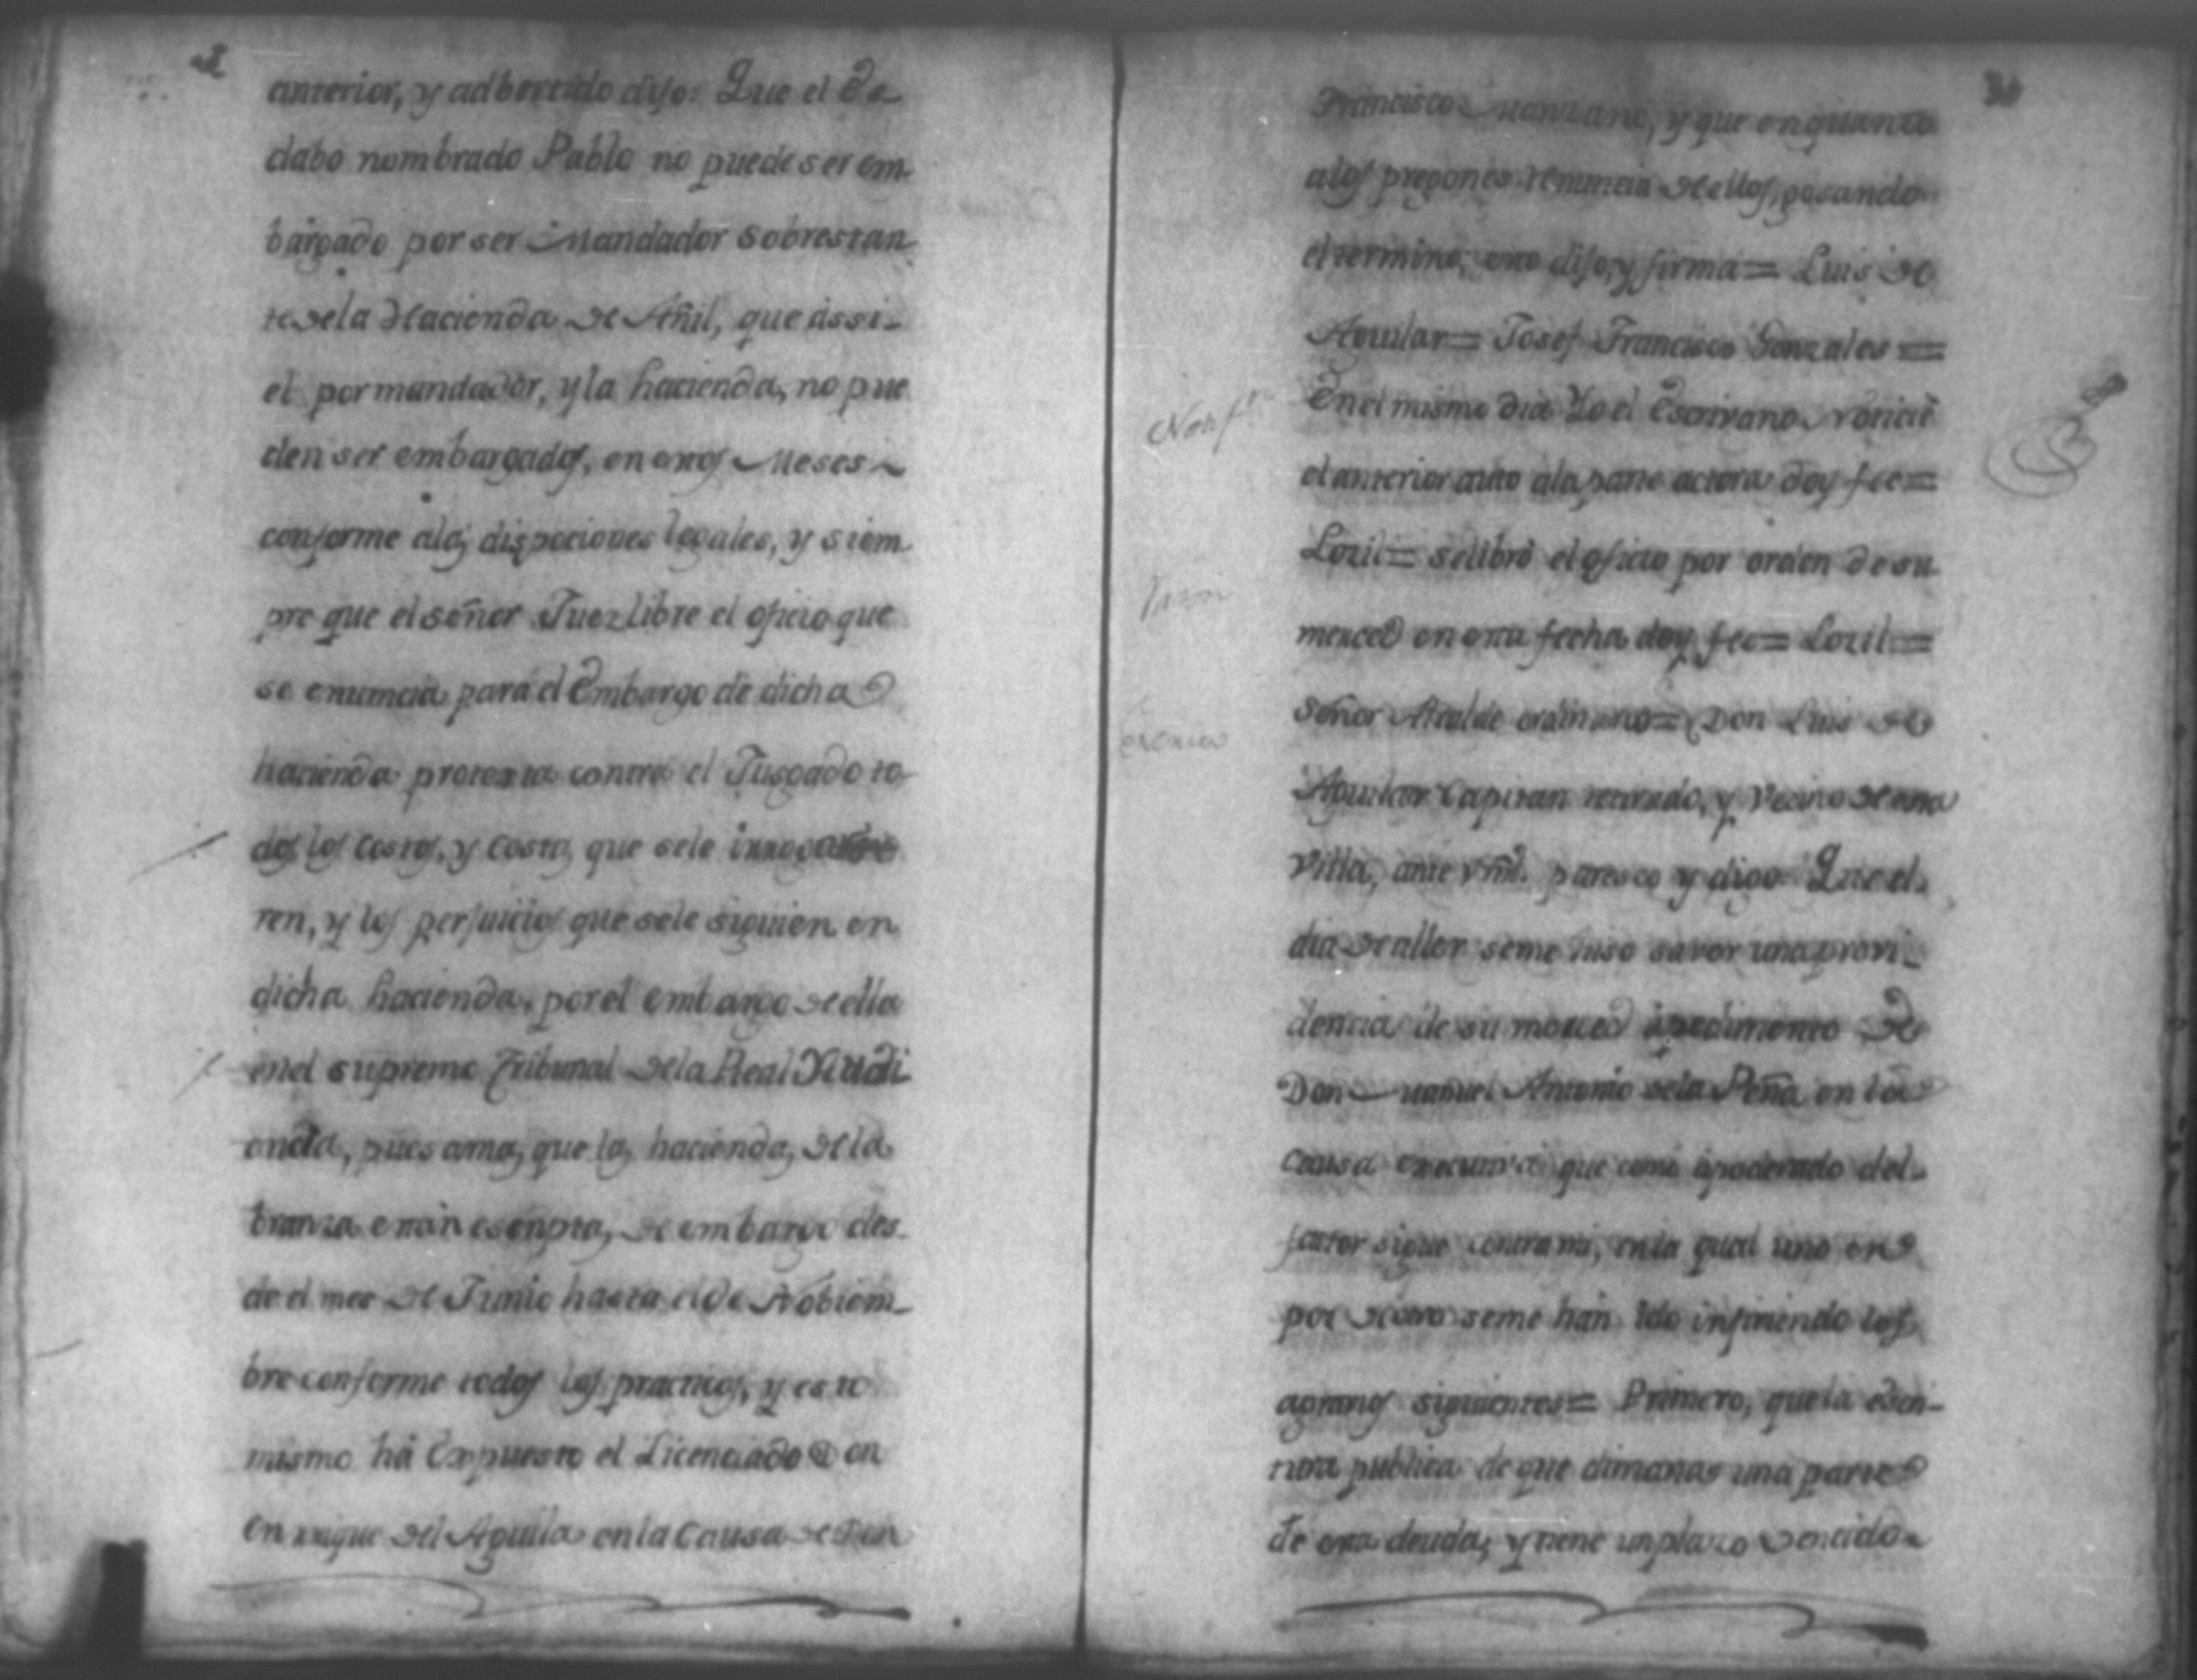 anterior, y adbertido dijo: Que el Es-
clabo nombrado Pablo no puede ser em
bargado por ser Mandador sobrestan
te dela Hacienda de Añil, que assi-
el por mandador, y la hacienda, no pue
den ser embargados, en estos Meses
conforme alas dispociones legales, y siem
pre que el señor Juez libre el oficio que
se enuncia para el Embargo de dicha
hacienda protexta contra el Jusgado to
dos los costos, y costas que sele irroga
ren, y los perjuicios que sele siguien en
dicha hacienda, por el embargo de ella
enel supremo Tribunal dela Real Audi
encia, pues amas que las haciendas de la
branza estan esenptas de embargo des-
de el mes de Junio hasta el de Nobiem-
bre conforme todos los practicos, y esto
mismo há Expuesto el Licenciado Don
Enrrique del Aguila en la Causa de Don
Francisco Manzano, y que en quanto
alos pregones renuncia de ellos, gosando
el termino, esto dijo, y firma = Luis de
Aguilar = Josef Francisco Gonzales =
Notif.on
En el mismo dia Yo el Escrivano noticié
el anterior auto ala parte actora doy fee =
Lozil = se libró el oficio por orden de su
Razon
merced en esta fecha doy fee = Lozil =
Escrito
Señor Alcalde ordinario = Don Luis de
Aguilar Capitan retirado, y Vecino de esta
Villa, ante vmd. paresco y digo: Que el
dia de aller seme hiso saver una provi-
dencia de su merced apedimento de
Don Manuel Antonio dela Peña en la
causa executiva que como apoderado del
factor sigue contra mi, en la qual uno en
por de otro seme hán ido infiriendo los
agravios siguientes = Primero, que la escri-
tura publica de que dimanas una parte
de esta deuda, y tiene un plazo vencido